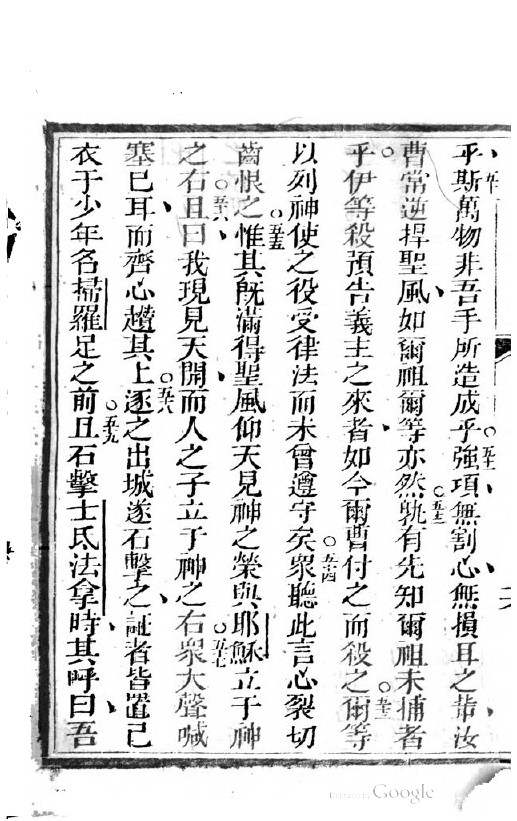 乎斯萬物非吾手所造成乎○五十一強項無割心無損耳之昔汝
曹常逆捍聖風如爾祖爾等亦然○五十二孰有先知爾祖未捕者
乎伊等殺預告義主之來者如今爾曹付之而殺之○五十三爾等
以列神使之役受律法而未曾遵守矣○五十四眾聽此言心裂切
齒恨之○五十五惟其既滿得聖風仰天見神之榮與耶穌立于神
之右○五十六且曰我現見天開而人之子立于神之右○五十七眾大聲喊
塞己耳而齊心趲其上○五十八逐之出城遂石擊之証者皆置己
衣于少年名掃羅足之前○五十九且石擊士氐法拿時其呼曰吾
Digitized by Google